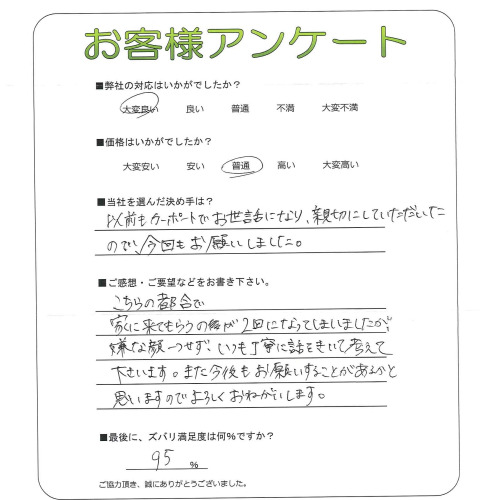 お客様アンケート
■弊社の対応はいかがでしたか?
大変良い 良い 普通 不満 大変不満
■価格はいかがでしたか?
大変安い 安い 普通 高い 大変高い
■当社を選んだ決め手は?
以前もカーポートでお世話になり、親切にしていただいた
ので、今回もお願いしました。
■ご感想・ご要望などをお書き下さい。
こちらの都合で
家に来てもらうのが2回になってしまいましたが、
嫌な顔一つせず、いつも丁寧に話をきいて考えて
下さいます。また今後もお願いすることがあるかと
思いますのでよろしくおねがいします。
■最後に、ズバリ満足度は何%ですか?
95 %
ご協力頂き、誠にありがとうございました。